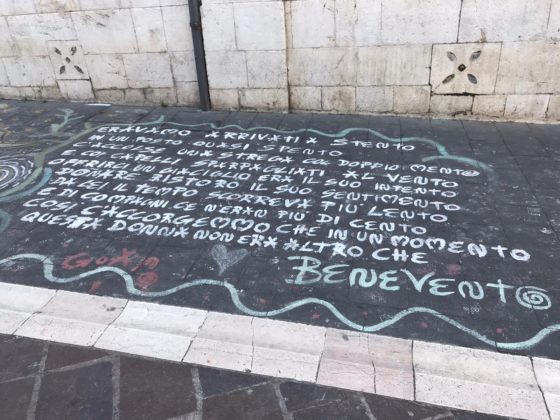 ERAVAMO ARRIVATI A STENTO
A UN POSTO QUASI SPENTO
C'ACCOLSE UNA STREGA COL DOPPIO MENTO
COI CAPELLI SPARPAGLIATI AL VENTO
OFFRIRE UN GIACIGLIO ERA IL SUO INTENTO
DONARE RISTORO IL SUO SENTIMENTO
DA LEI IL TEMPO SCORREVA PIU' LENTO
E DI COMPAGNI CE N'ERAN PIU' DI CENTO
COSI' C'ACCORGEMMO CHE IN UN MOMENTO
QUESTA DONNA NON ERA ALTRO CHE
BENEVENTO